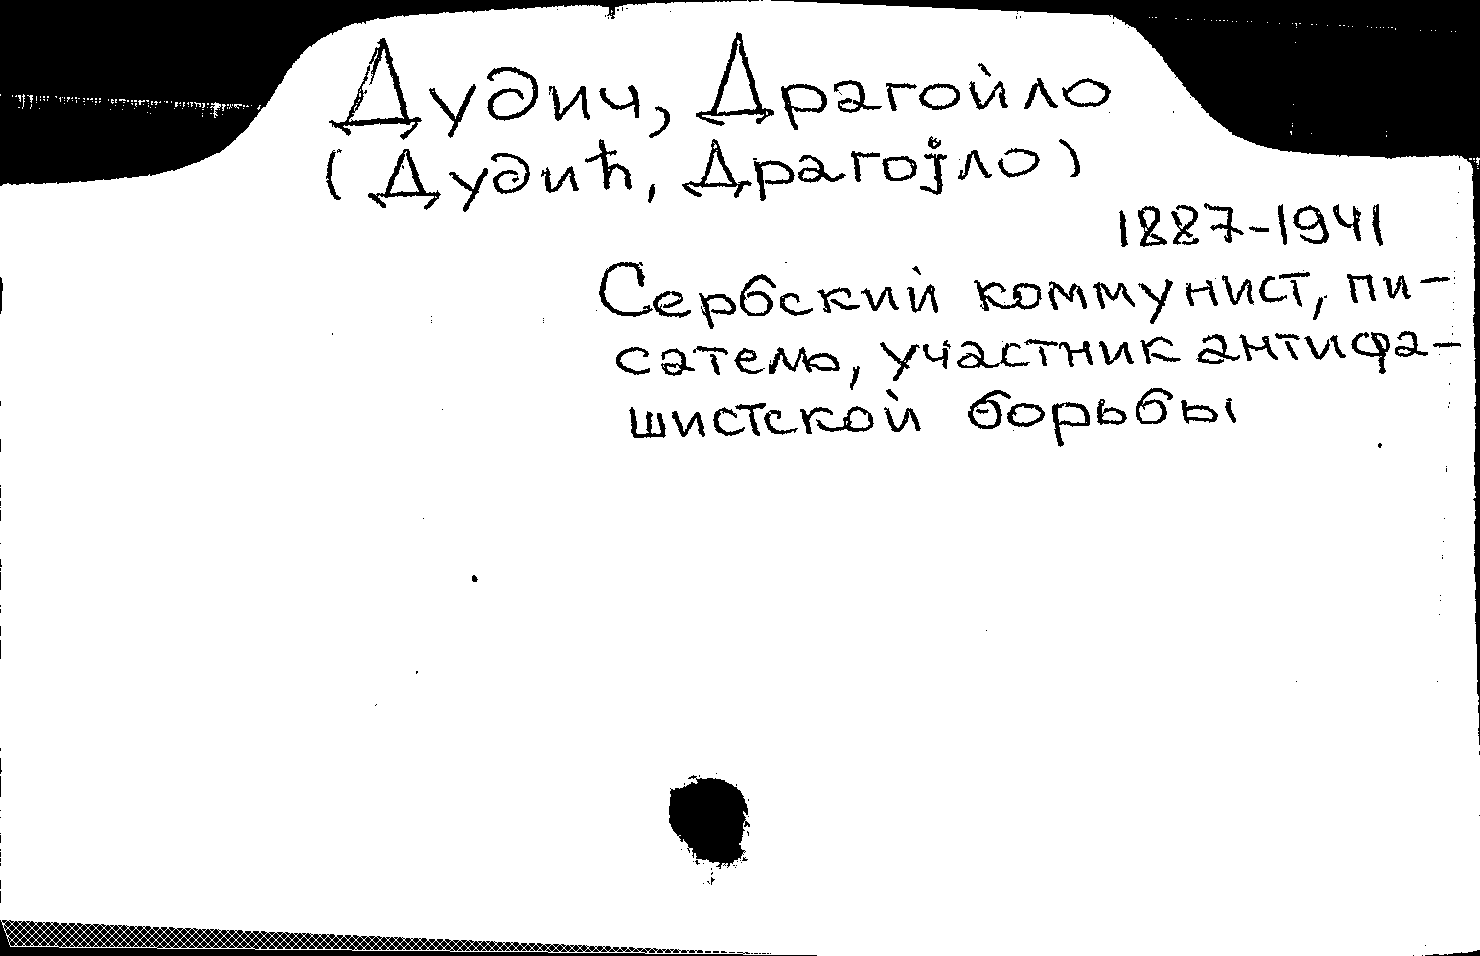 Дудич, Драгойло
(Дудић, Драгојло)
1887-1941
Сербский коммунист, пи-
сатель, участник антифа-
шистской борьбы